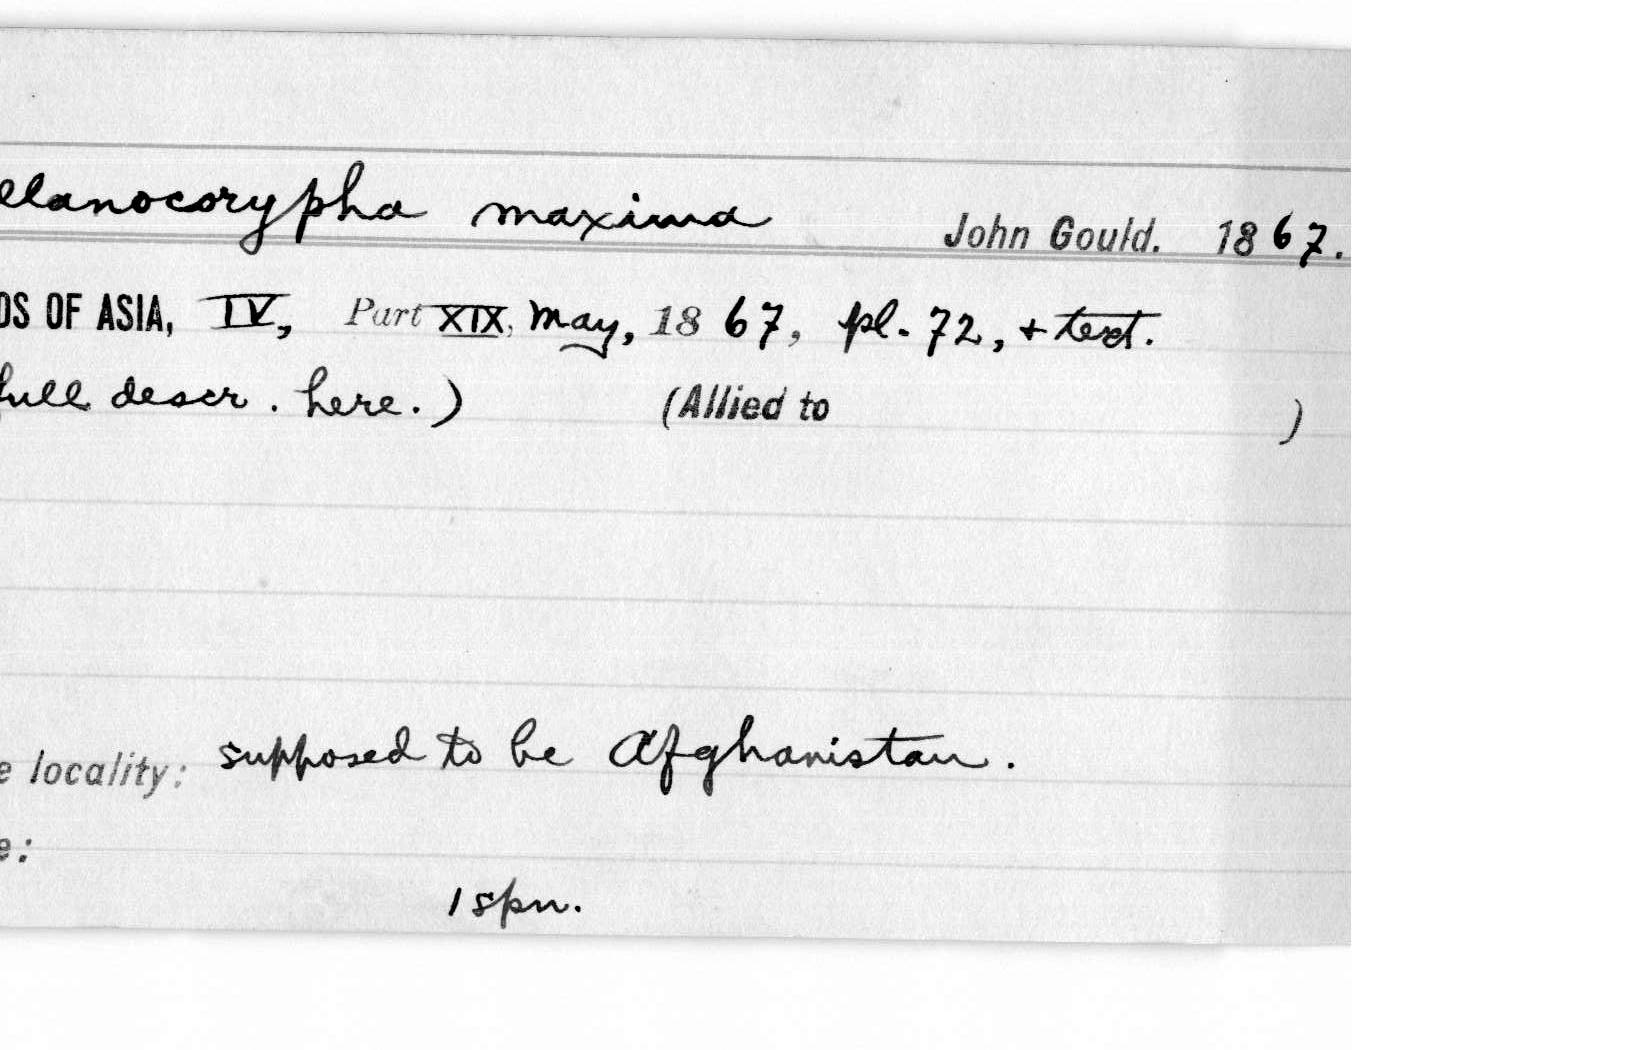 elanocorypha maxima John Gould. 1867.
DS OF ASIA, IV, Part XIX, May, 1867, pl. 72, + text.
full descr. here.) (Allied to )
e locality: supposed to be Afghanistan.
e:
1 spn.